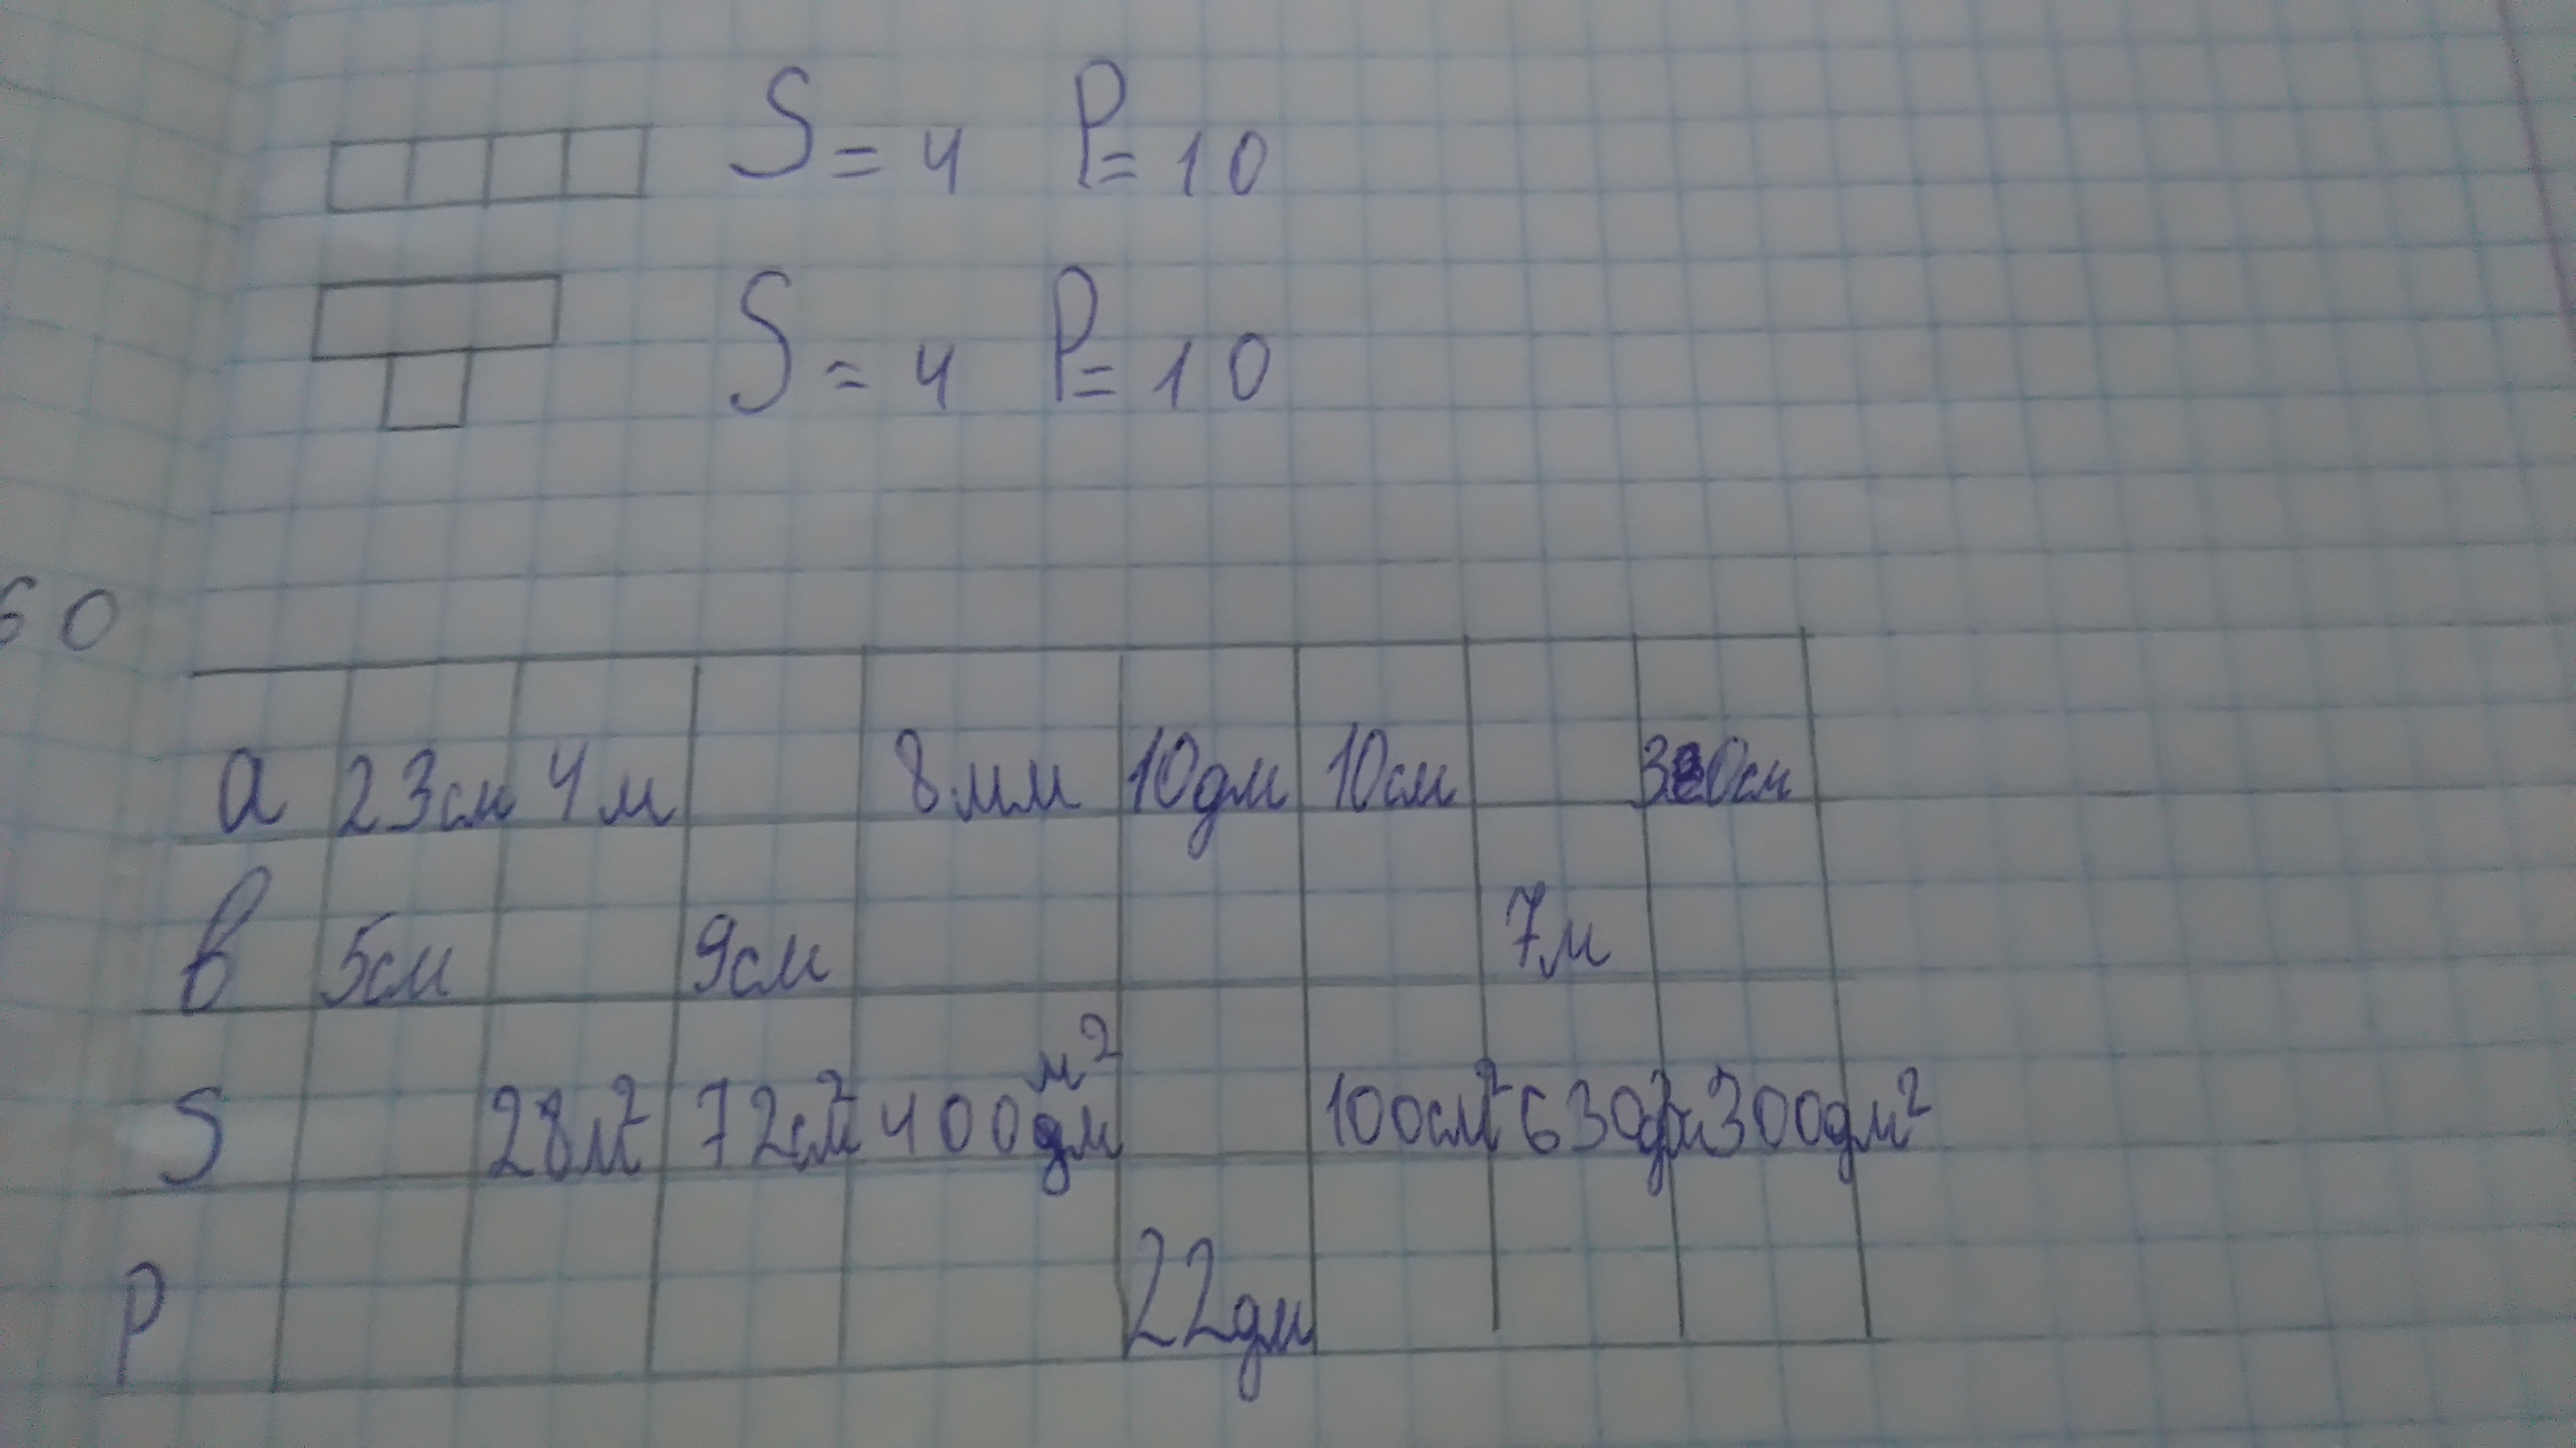 S = 4 P = 10
S = 4 P = 10
60
a 23см 4м 8мм 10дм 10см
в 5см 9см 7м
S 28м² 72см² 400 м² 100см² 630 300дм²
P 22дм